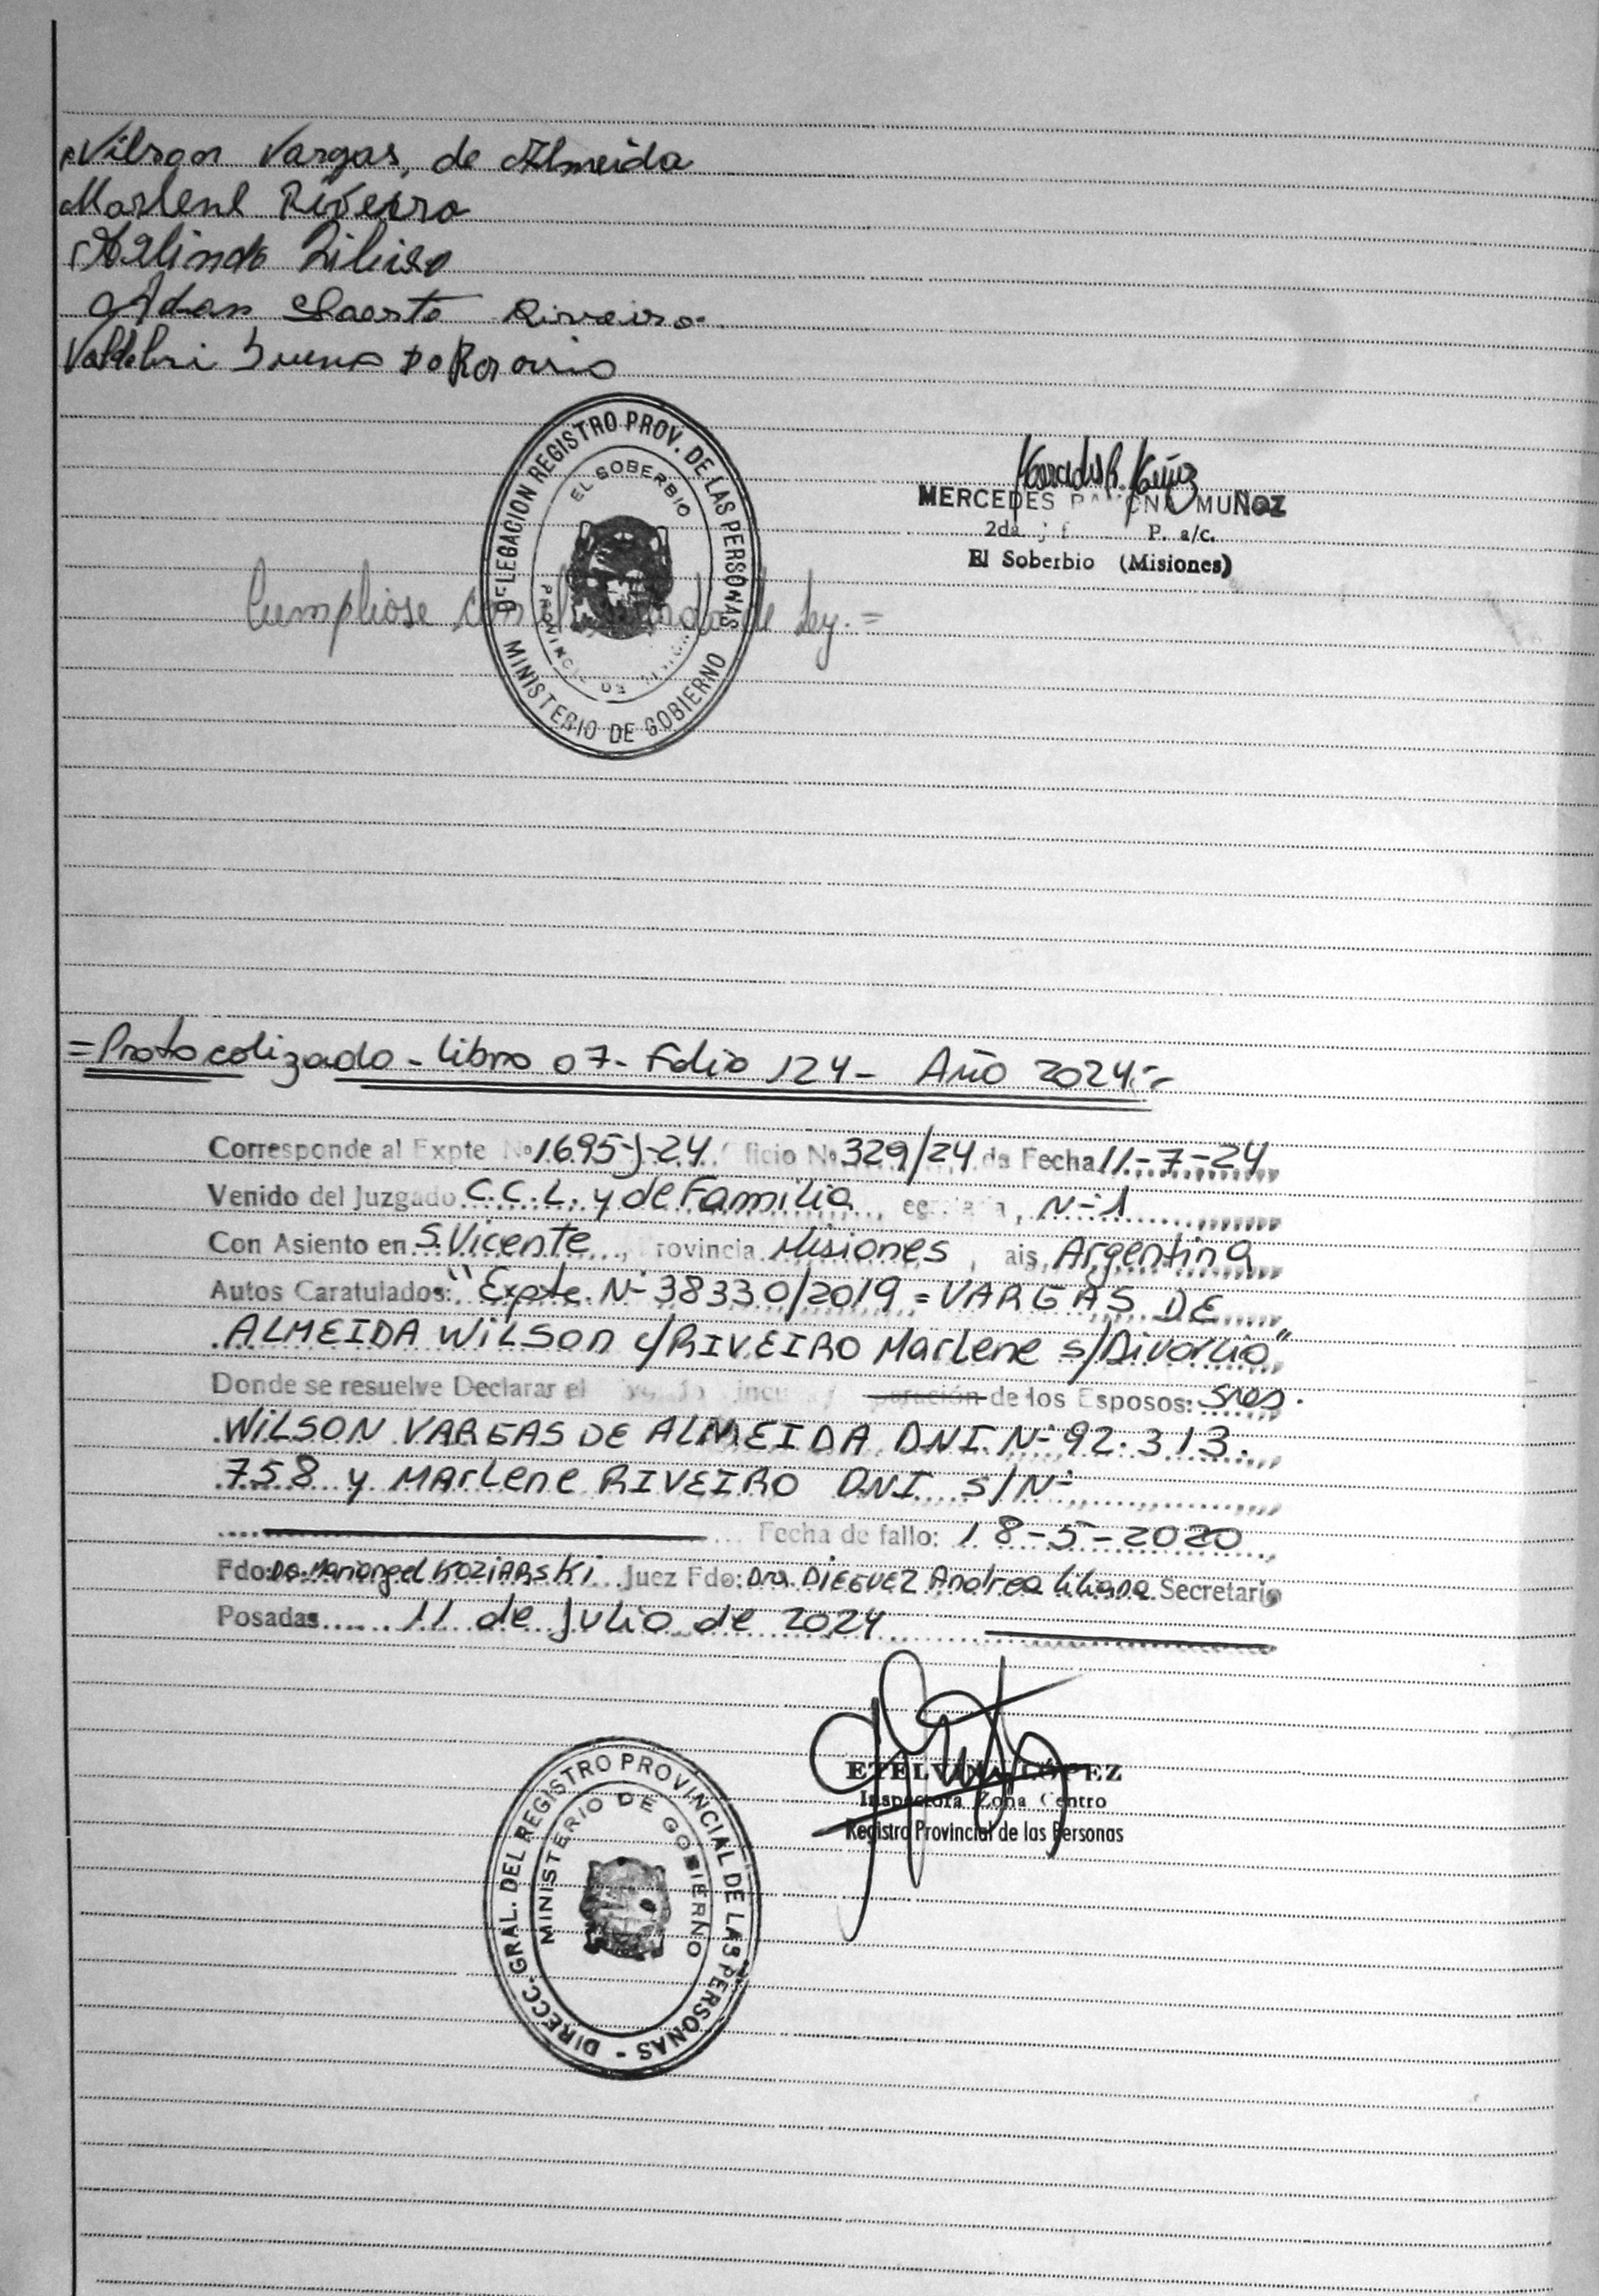 Wilson Vargas, de Almeida
Marlene Riveiro
Arlindo Ribeiro
Adan Riveiro
Bueno Do Rosario
DELEGACION REGISTRO PROV. DE LAS PERSONAS
MINISTERIO DE GOBIERNO
EL SOBERBIO
PROVINCIA DE
MERCEDES MUÑOZ
2da. P. a/c.
El Soberbio (Misiones)
Cumpliose con de Ley.=
=Protocolizado - Libro 07- Folio 124- Año 2024.-
Corresponde al Expte Nº 1695-J-24 ficio Nº 329/24 de Fecha 11-7-24
Venido del Juzgado C.C.L. y de Familia, N-1
Con Asiento en S.Vicente, rovincia Misiones, ais, Argentina
Autos Caratulados: "Expte. N- 38330/2019 = VARGAS DE
ALMEIDA WILSON c/RIVEIRO Marlene s/Divorcio"
Donde se resuelve Declarar el paración de los Esposos: Sres.
WILSON VARGAS DE ALMEIDA DNI.N-92.313.
758 y MARLene RIVEIRO DNI s/N-
Fecha de fallo: 18-5-2020
Fdo: Mariangel KOZIARSKI Juez Fdo: Dra DIEGUEZ Andrea Liliana Secretario
Posadas 11 de Julio de 2024
ETELVINA LÓPEZ
Inspectora Zona Centro
Registro Provincial de las Personas
DIRECC. GRAL. DEL REGISTRO PROVINCIAL DE LAS PERSONAS -
MINISTERIO DE GOBIERNO